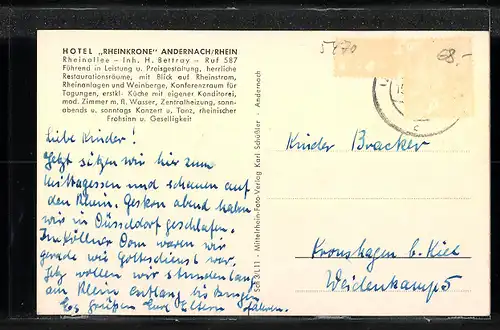 HOTEL „RHEINKRONE" ANDERNACH/RHEIN
Rheinallee – Inh. H. Bettray – Ruf 587
Führend in Leistung u. Preisgestaltung, herrliche
Restaurationsräume, mit Blick auf Rheinstrom,
Rheinanlagen und Weinberge, Konferenzraum für
Tagungen, erstkl. Küche mit eigener Konditorei,
mod. Zimmer m. fl. Wasser, Zentralheizung, sonn-
abends u. sonntags Konzert u. Tanz, rheinischer
Frohsinn u. Geselligkeit
Liebe Kinder!
Jetzt sitzen wir hier zum
Mittagessen und schauen auf
den Rhein. Gestern abend haben
wir in Düsseldorf geschlafen.
Im Kölner Dom waren wir
gerade wie Gottesdienst war.
Jetzt wollen wir stundenlang
am Rhein entlang bis Bingen
fahren.
Es grüßen Eure Eltern
Sch 3/L11 - Mittelrhein-Foto-Verlag Karl Schäßler - Andernach
5470
68,-
Kinder Bracker
Kronshagen b/ Kiel
Weidenkamp 5